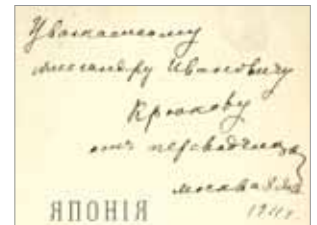 Уважаемому
Александру Ивановичу
Крюкову
отъ переводчика
Москва
ЯПОНІЯ
1911 г.